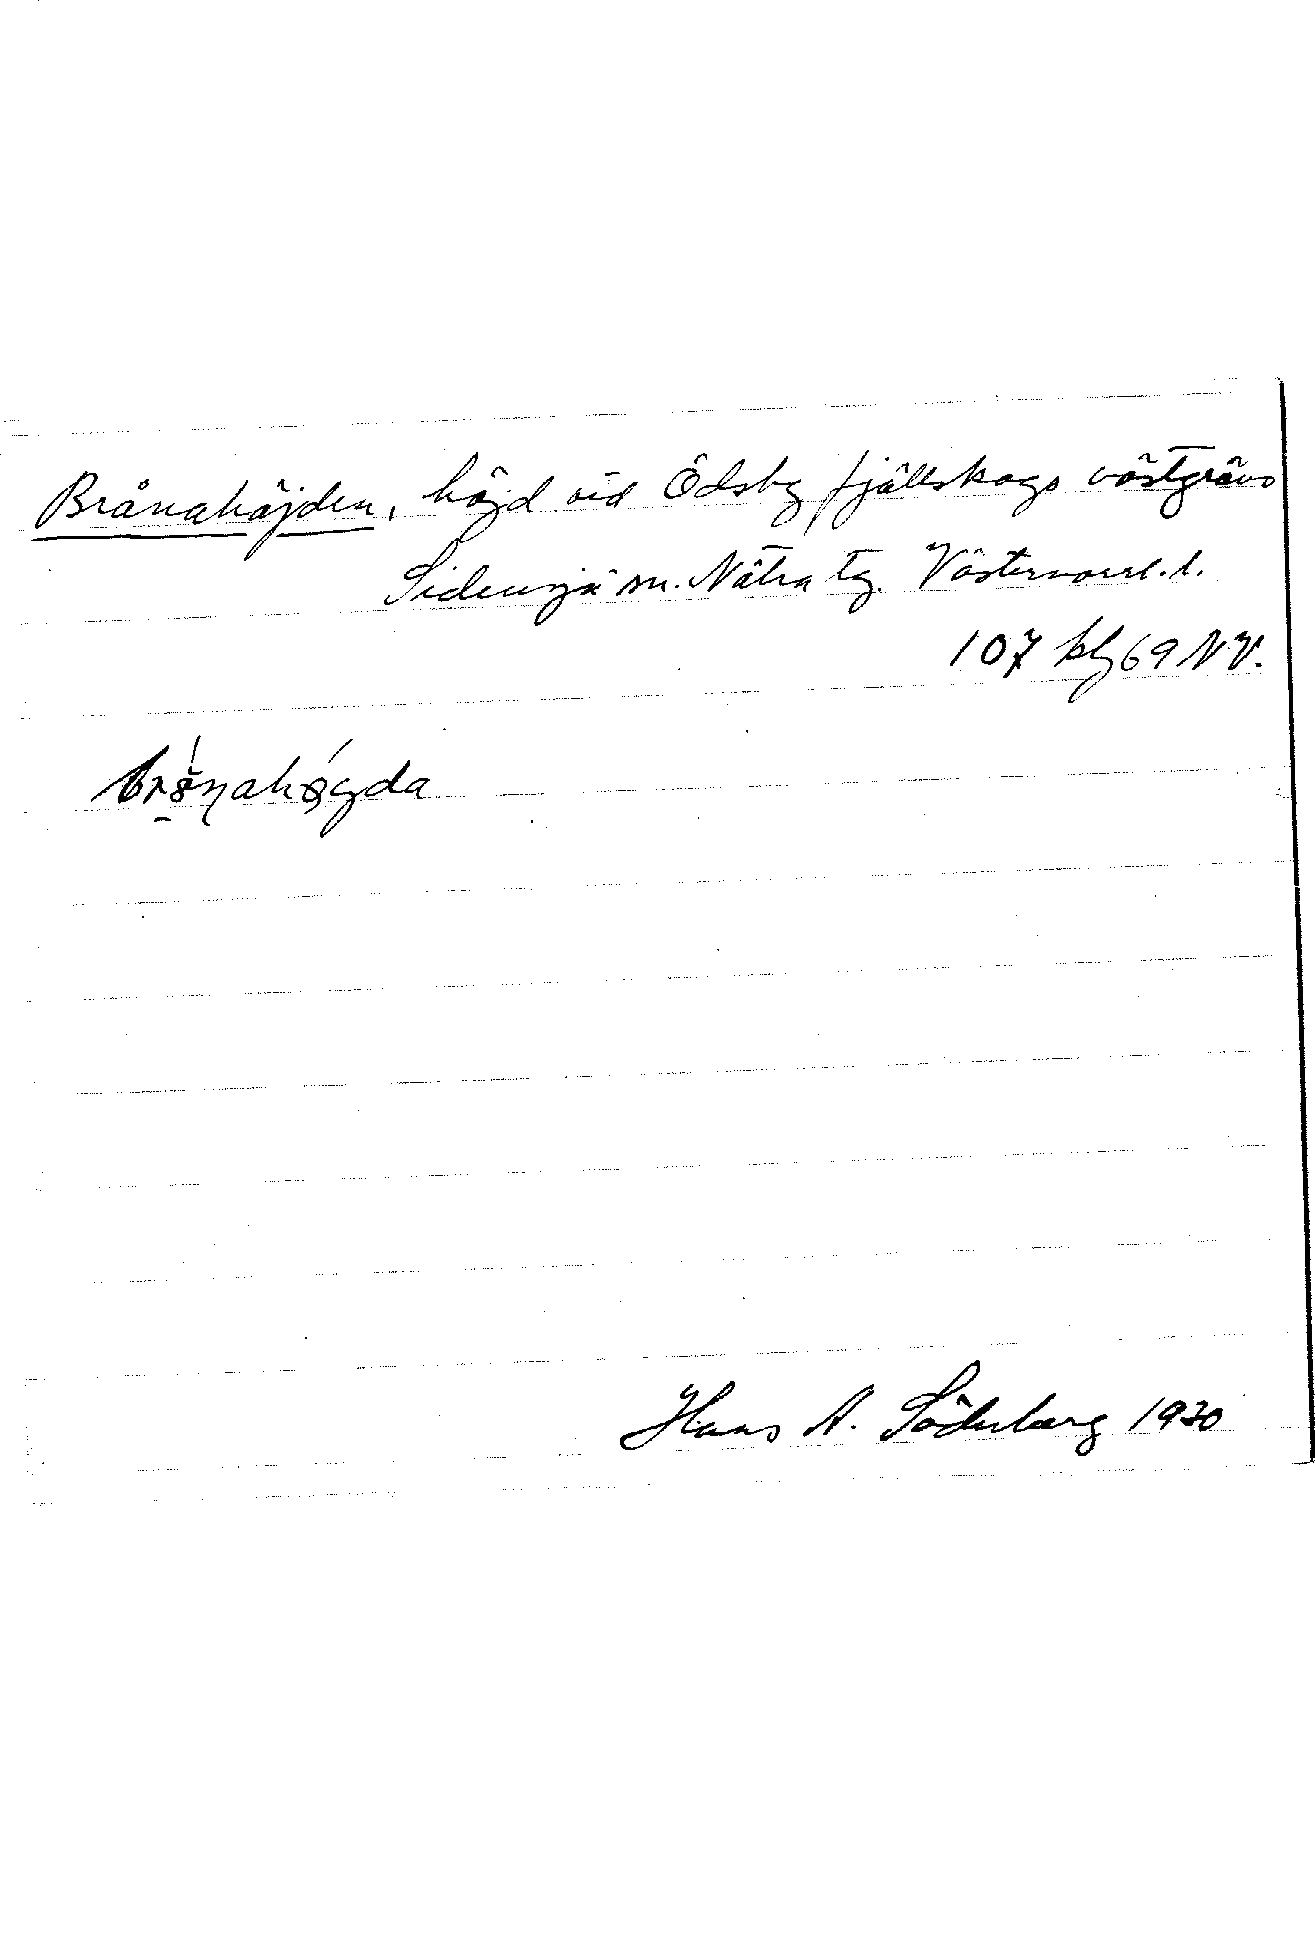 Brånahöjden, höjd vid Ödsby fjällskogs västgräns
Sidensjö sn. Nätra tg. Västernorrl. l.
107 kbl 69 NV.
Hans A. Söderberg 1930